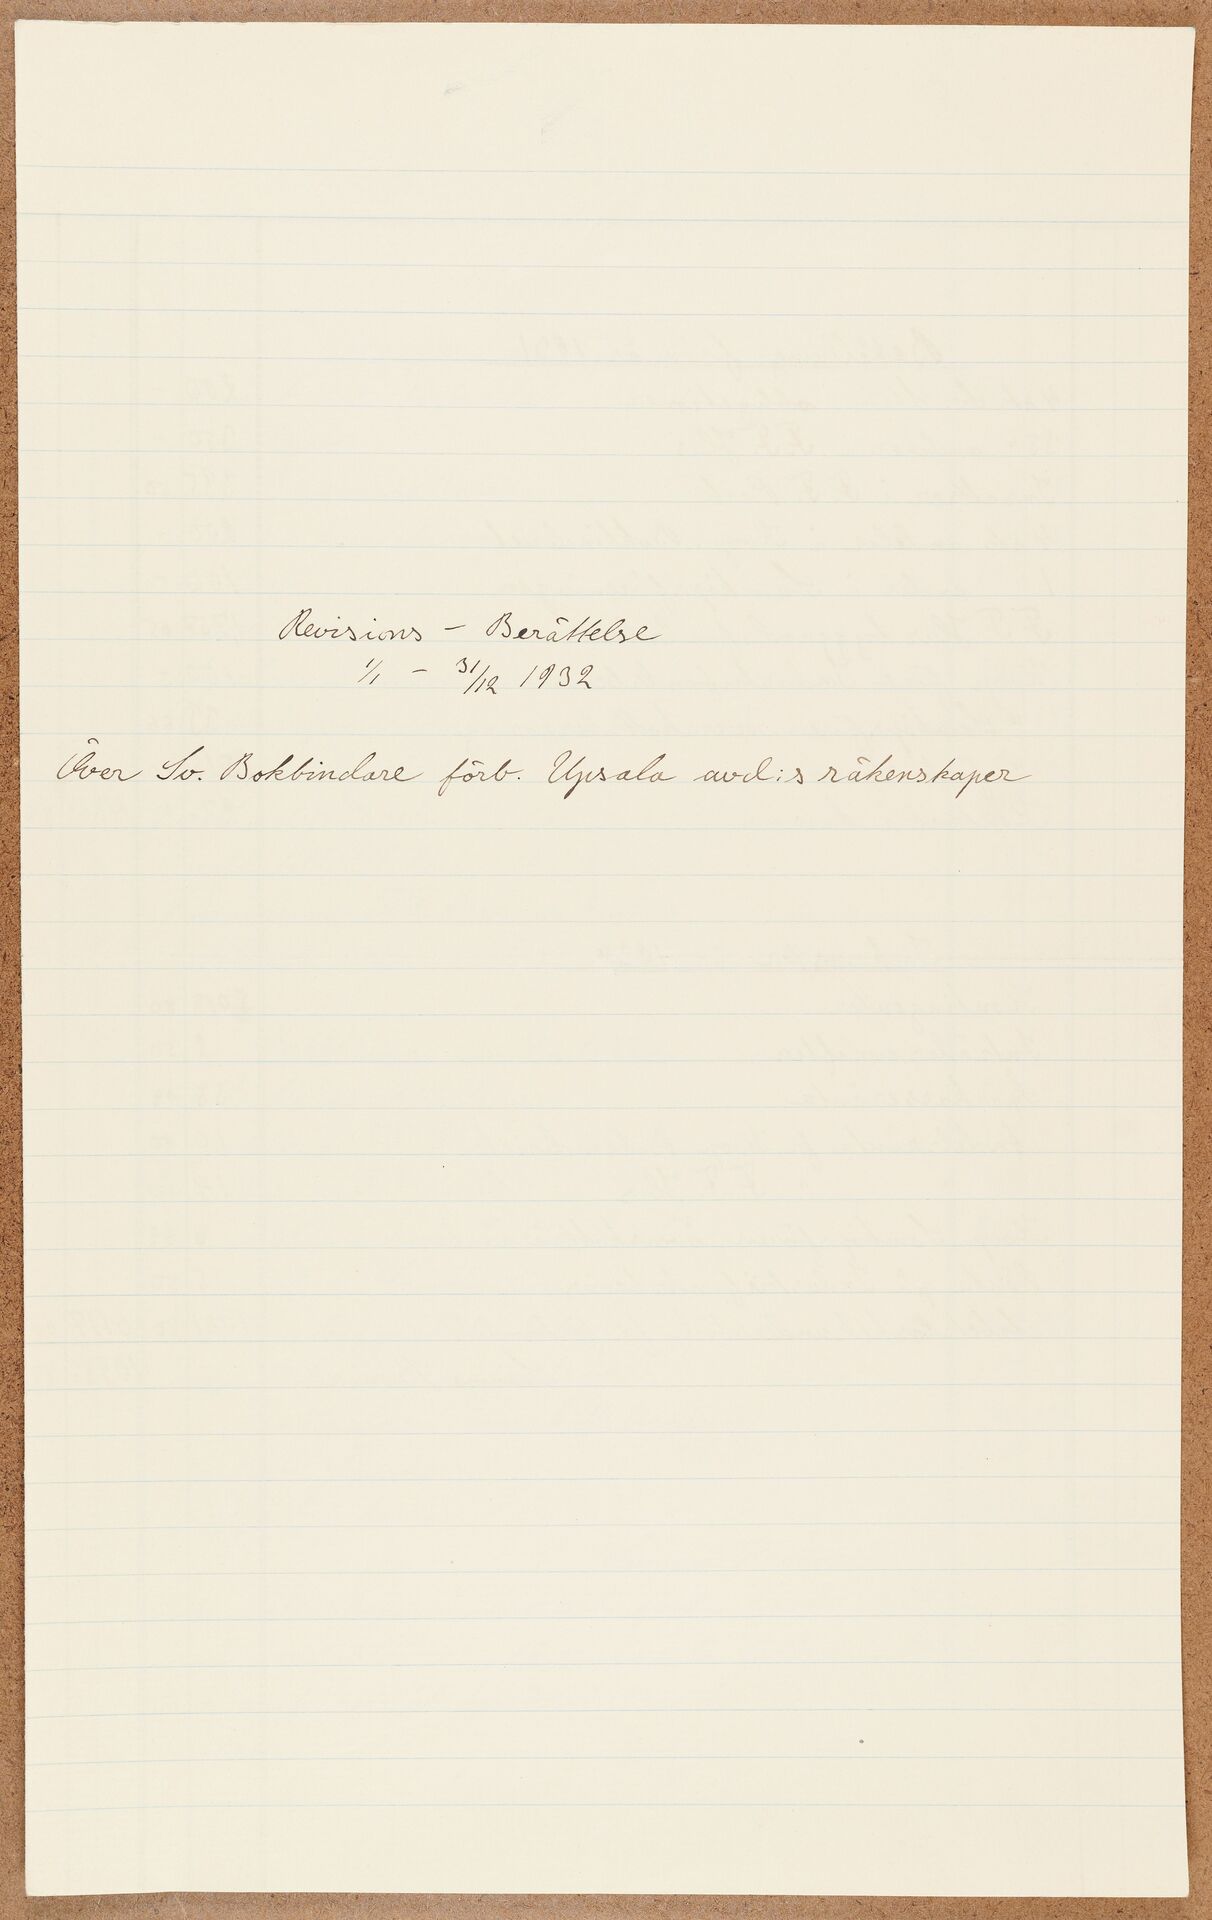 Revisions - Berättelse
1/1 - 31/12 1932
Över Sv. Bokbindare förb. Upsala avd:s räkenskaper